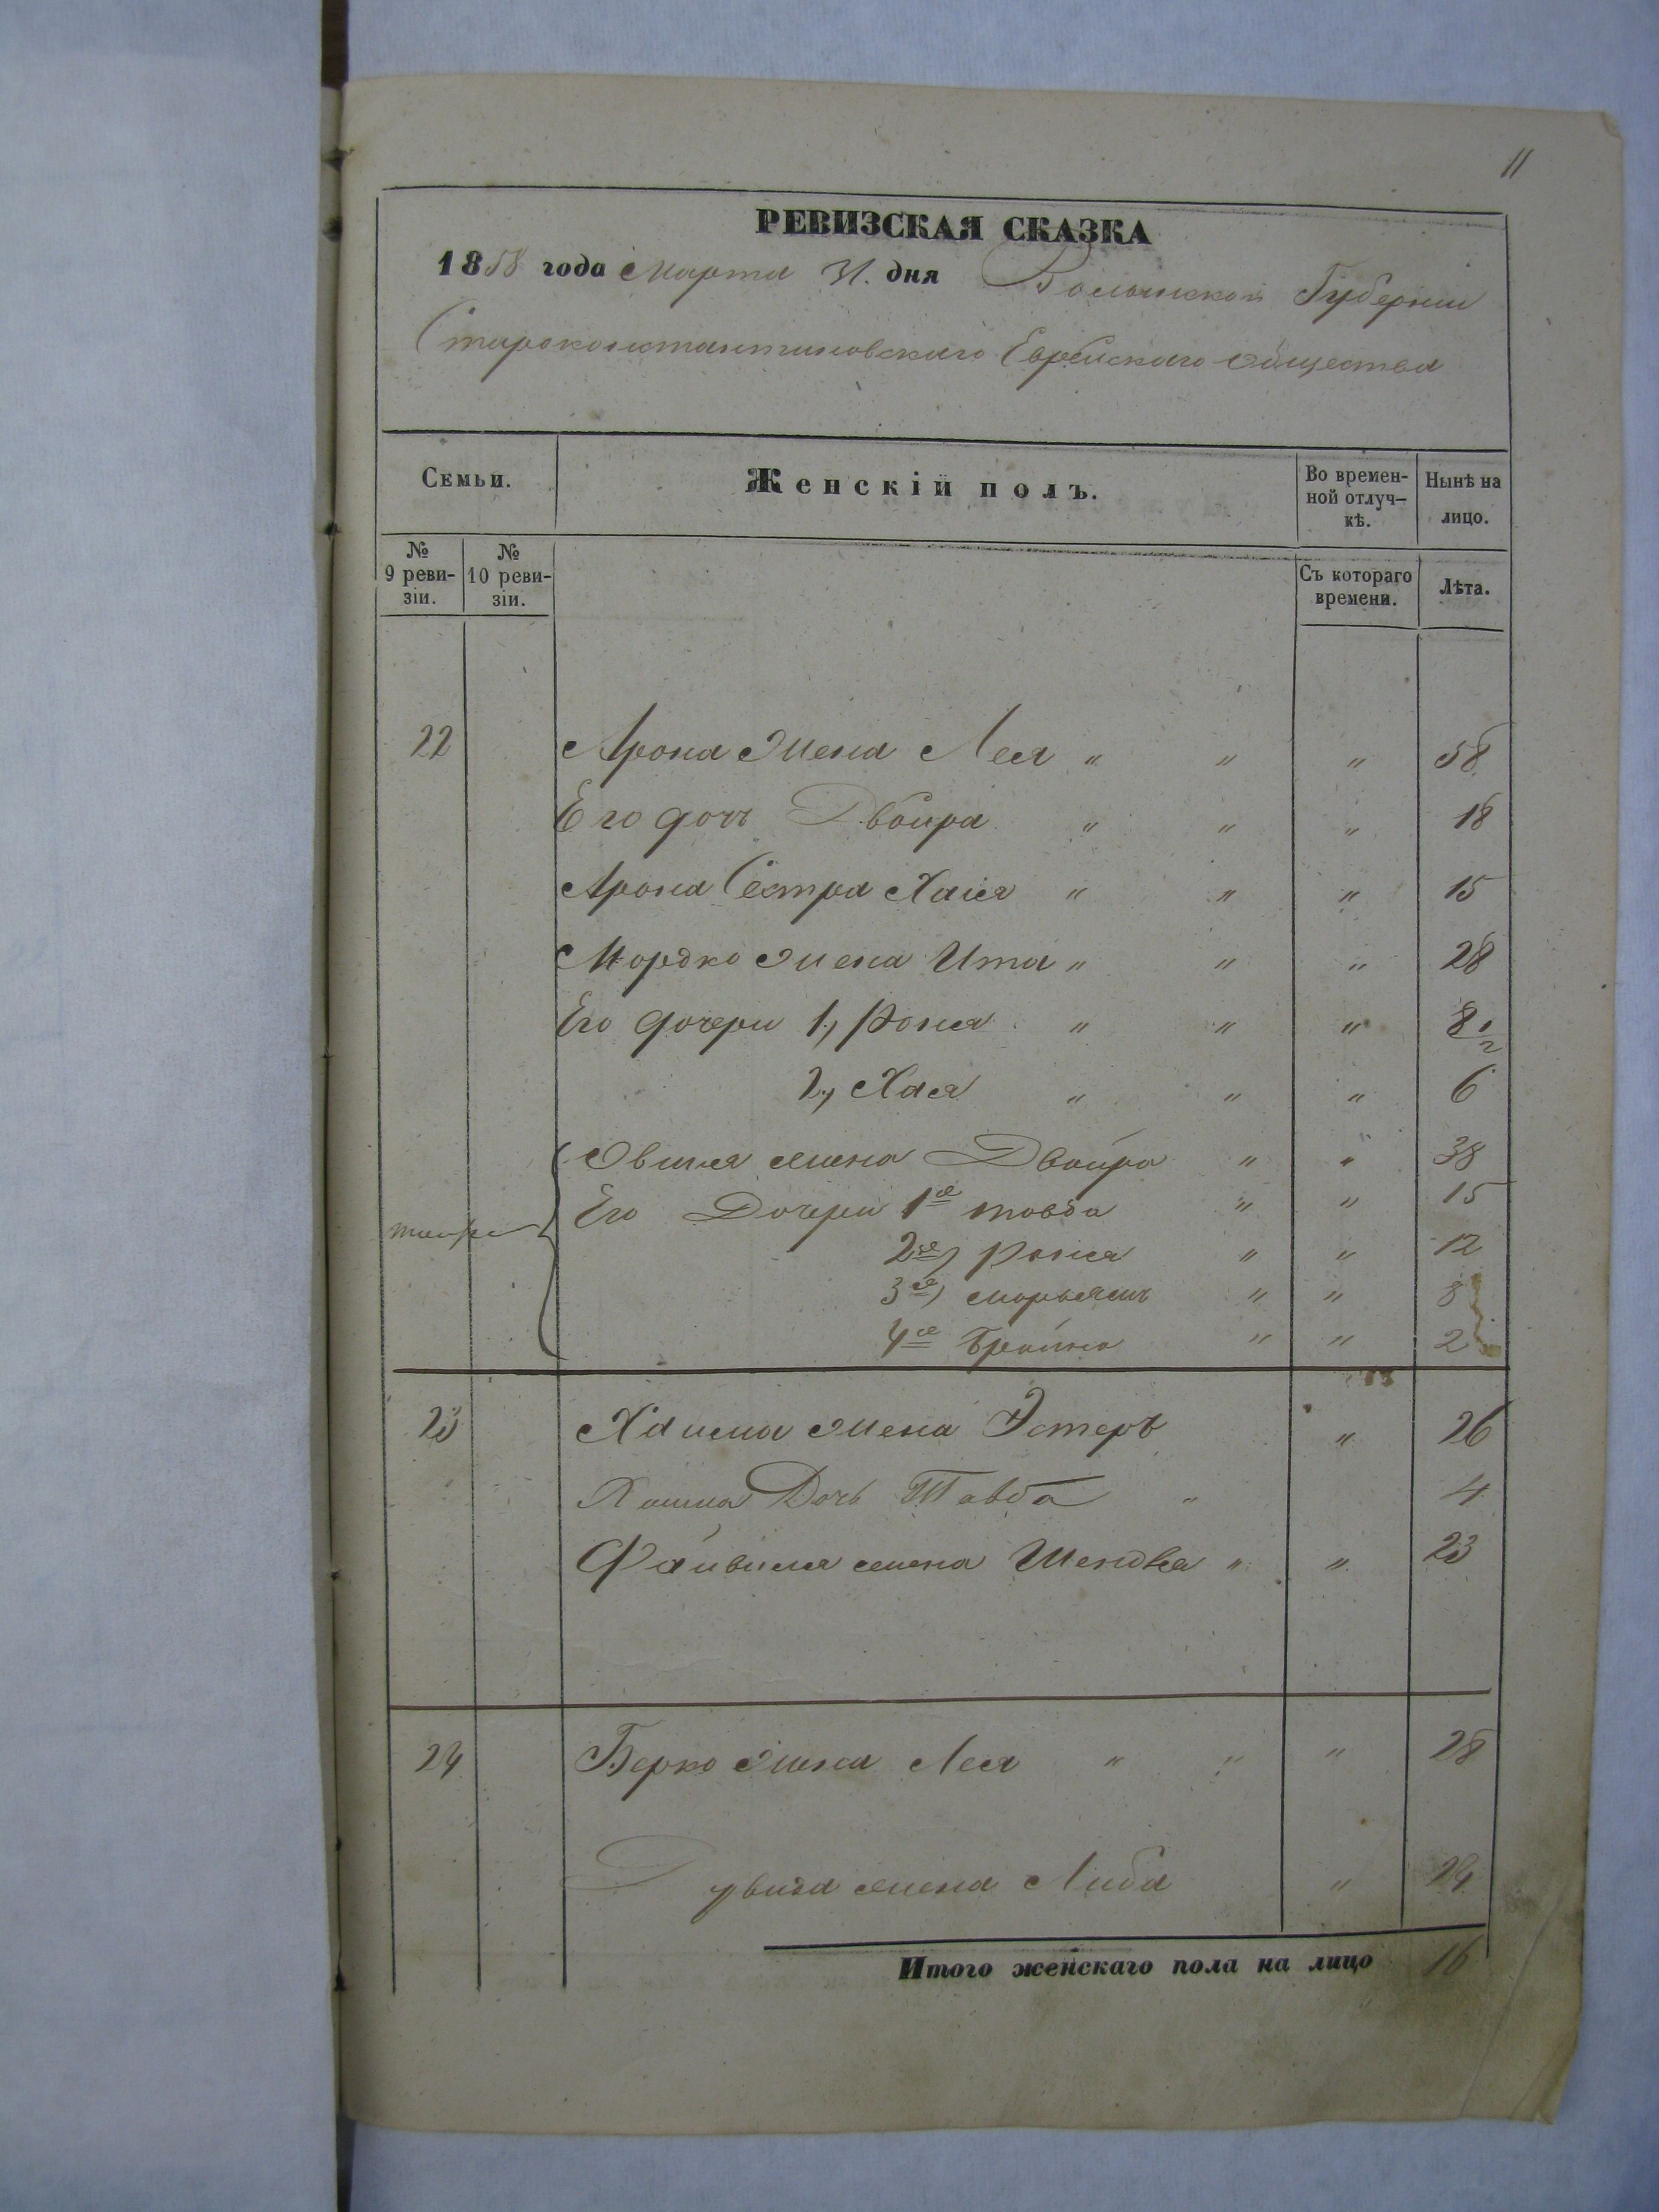 11
РЕВИЗСКАЯ СКАЗКА
1858 года Марта 31. дня Волынской Губерніи
Староконстантиновскаго Еврейскаго общества
Семьи. Женскій полъ. Во времен- Нынѣ на
ной отлуч- лицо.
кѣ.
№ №
9 реви- 10 реви- Съ котораго Лѣта.
зіи. зіи. времени.
22 Арона Жена Лея " " " 58
Его дочь Двойра " " " 18
Арона Сестра Хаія " " " 15
Мордко Жена Ита " " " 28
Его дочери 1, Роня " " " 8 1/2
2, Хая " " " 6
жена Двойра " " 38
Его Дочери 1я товба " " 15
2я) Рися " " 12
3я) " " 8
4я Брайна " " 2
23 Хаима Жена Эстеръ " 26
Хаима Дочь Товба " 4
Файвиля жена Шендля " " 23
24 Берко Жена Лея " " " 28
жена Либа " 24
Итого женскаго пола на лицо 16